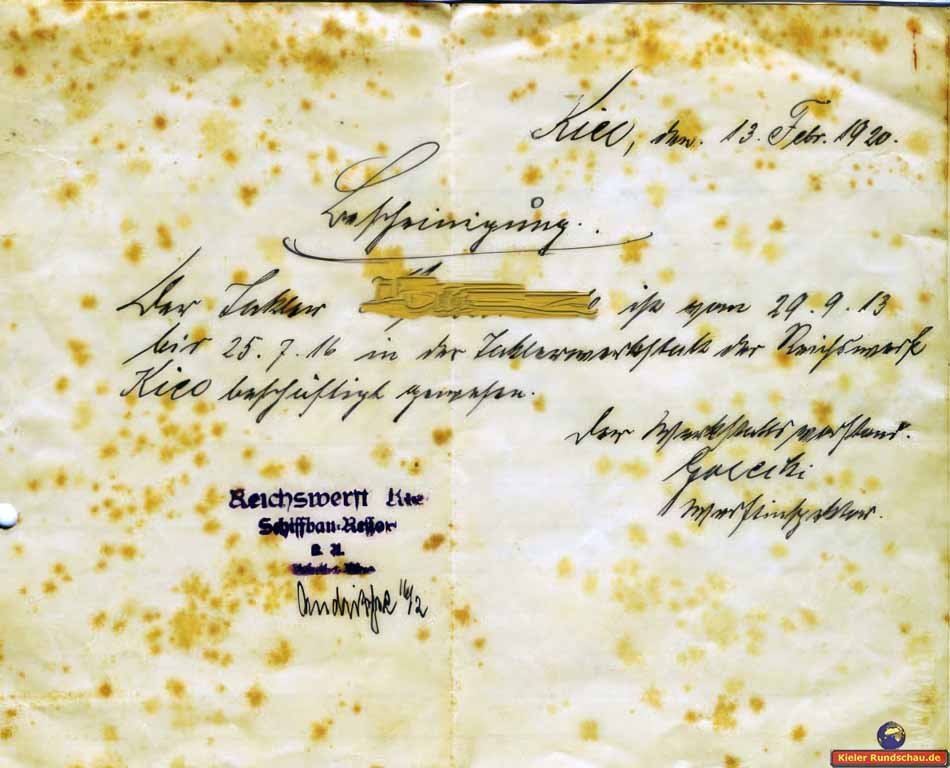 Kiel, den. 13. Febr. 1920.
Bescheinigung.
Der Takler ist vom 29. 9. 13
bis 25. 7. 16 in der Taklerwerkstatt der Reichswerft
Kiel beschäftigt gewesen.
Der Werkstattsvorstand.
Werftinspektor.
Reichswerft Kiel
Schiffbau-Ressort
16/2
Kieler Rundschau.de